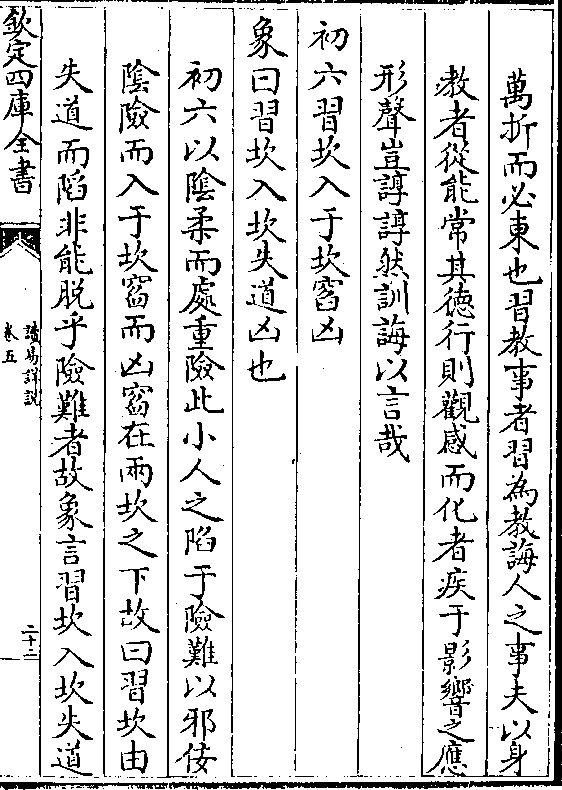 萬折而必東也習教事者習為教誨人之事夫以身
教者從能常其徳行則觀感而化者疾于影響之應
形聲豈諄諄然訓誨以言哉
初六習坎入于坎窞凶
象曰習坎入坎失道凶也
初六以陰柔而處重險此小人之陷于險難以邪佞
陰險而入于坎窞而凶窞在兩坎之下故曰習坎由
失道而陷非能脱乎險難者故象言習坎入坎失道
欽定四庫全書
讀易詳說
卷五
二十二